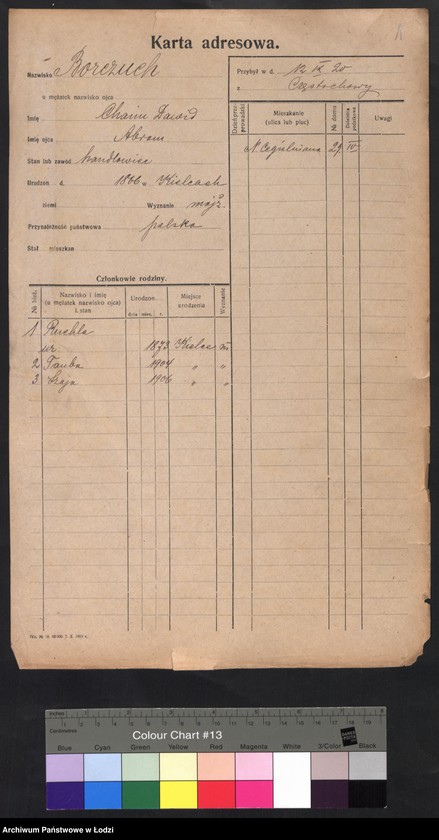 Karta adresowa.
Nazwisko Borczuch
u mężatek nazwisko ojca
Imię Chaim Dawid
Imię ojca Abram
Stan lub zawód handlowiec
Urodzon d. 1866 w Kielcach
ziemi Wyznanie mojż.
Przynależność państwowa polska
Stał mieszkan
Przybył w d. IX 20
z Częstochowy
Mieszkanie
(ulica lub plac)
№ domu
Dzielnica
Uwagi
N. Cegielniana 29 IV
Członkowie rodziny.
Nazwisko i imię
(u mężatek nazwisko ojca)
i stan
Urodzon.
dnia mies. r.
Miejsce
urodzenia
Wyznanie
1 Ruchla
1873 Kielce m.
2 Tauba 1904 " "
3 Szaja 1906 " "
Inches
Centimetres
Colour Chart #13
Blue Cyan Green Yellow Red Magenta White 3/Color Black
Archiwum Państwowe w Łodzi